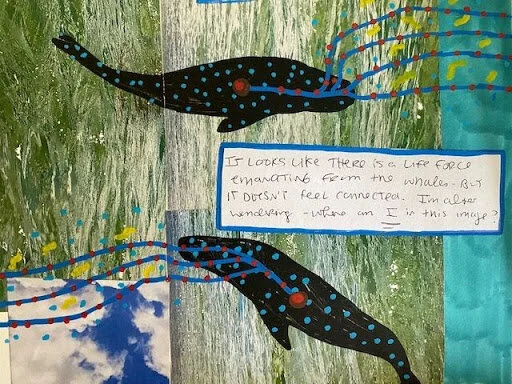 IT LOOKS LIKE THERE IS A LIFE FORCE
emanating from the whales - BUT
IT DOESN'T feel connected. I'm also
wondering - where am I in this image?